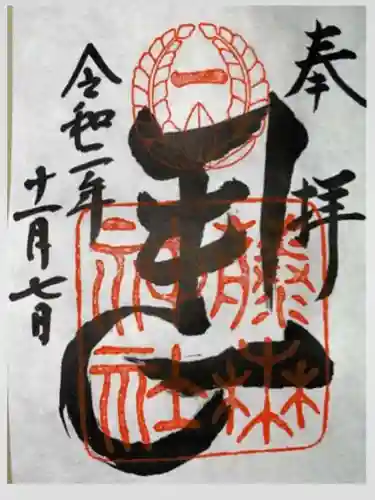 奉拝
藤森
神社
令和二年
十一月七日